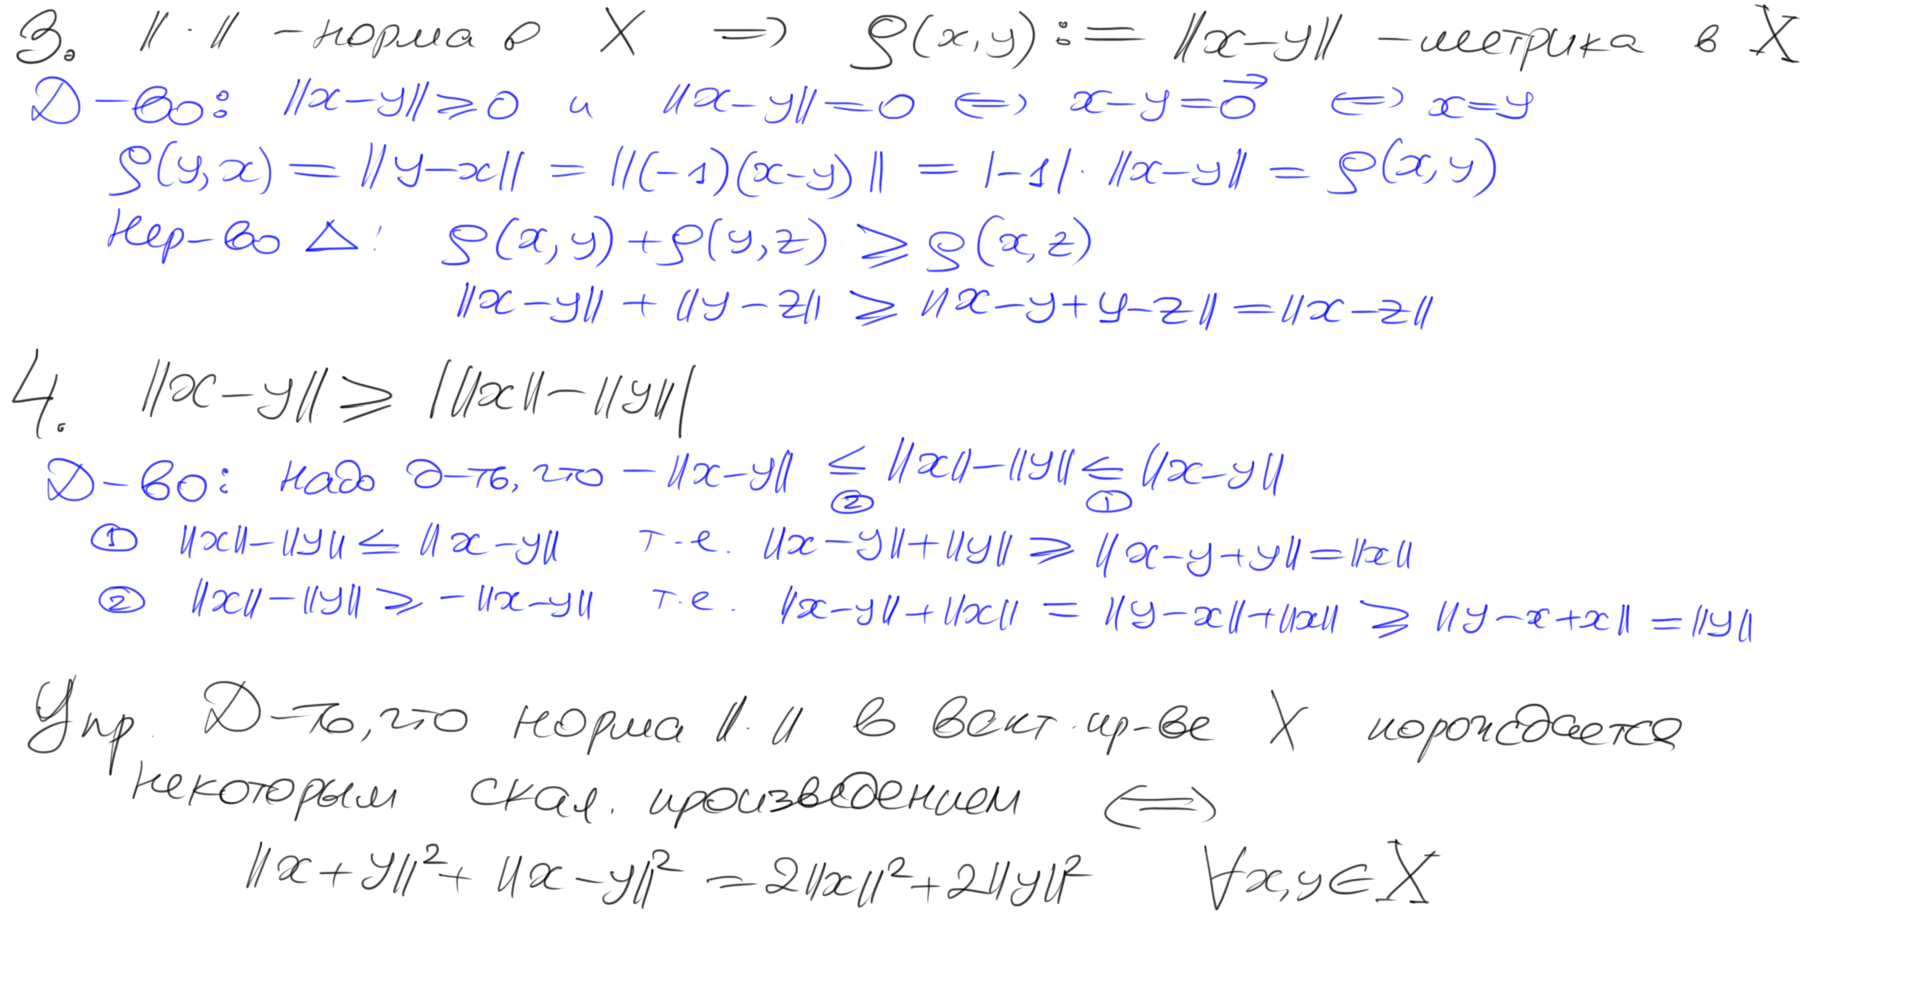 3. ||·|| - норма в X => ρ(x,y) := ||x-y|| - метрика в X
Д-во: ||x-y||⩾0 и ||x-y||=0 <=> x-y=0⃗ <=> x=y
ρ(y,x) = ||y-x|| = ||(-1)(x-y)|| = |-1|·||x-y|| = ρ(x,y)
Нер-во Δ: ρ(x,y)+ρ(y,z) ⩾ ρ(x,z)
||x-y|| + ||y-z|| ⩾ ||x-y+y-z|| = ||x-z||
4. ||x-y|| ⩾ | ||x||-||y|| |
Д-во: надо д-ть, что -||x-y|| ≤ ||x||-||y|| ≤ ||x-y||
② ①
① ||x||-||y|| ≤ ||x-y|| т.е. ||x-y||+||y|| ⩾ ||x-y+y||=||x||
② ||x||-||y|| ⩾ -||x-y|| т.е. ||x-y||+||x|| = ||y-x||+||x|| ⩾ ||y-x+x|| = ||y||
Упр. Д-ть, что норма ||·|| в вект. пр-ве X порождается
некоторым скал. произведением <=>
||x+y||²+ ||x-y||² = 2||x||²+2||y||² ∀x,y∈X